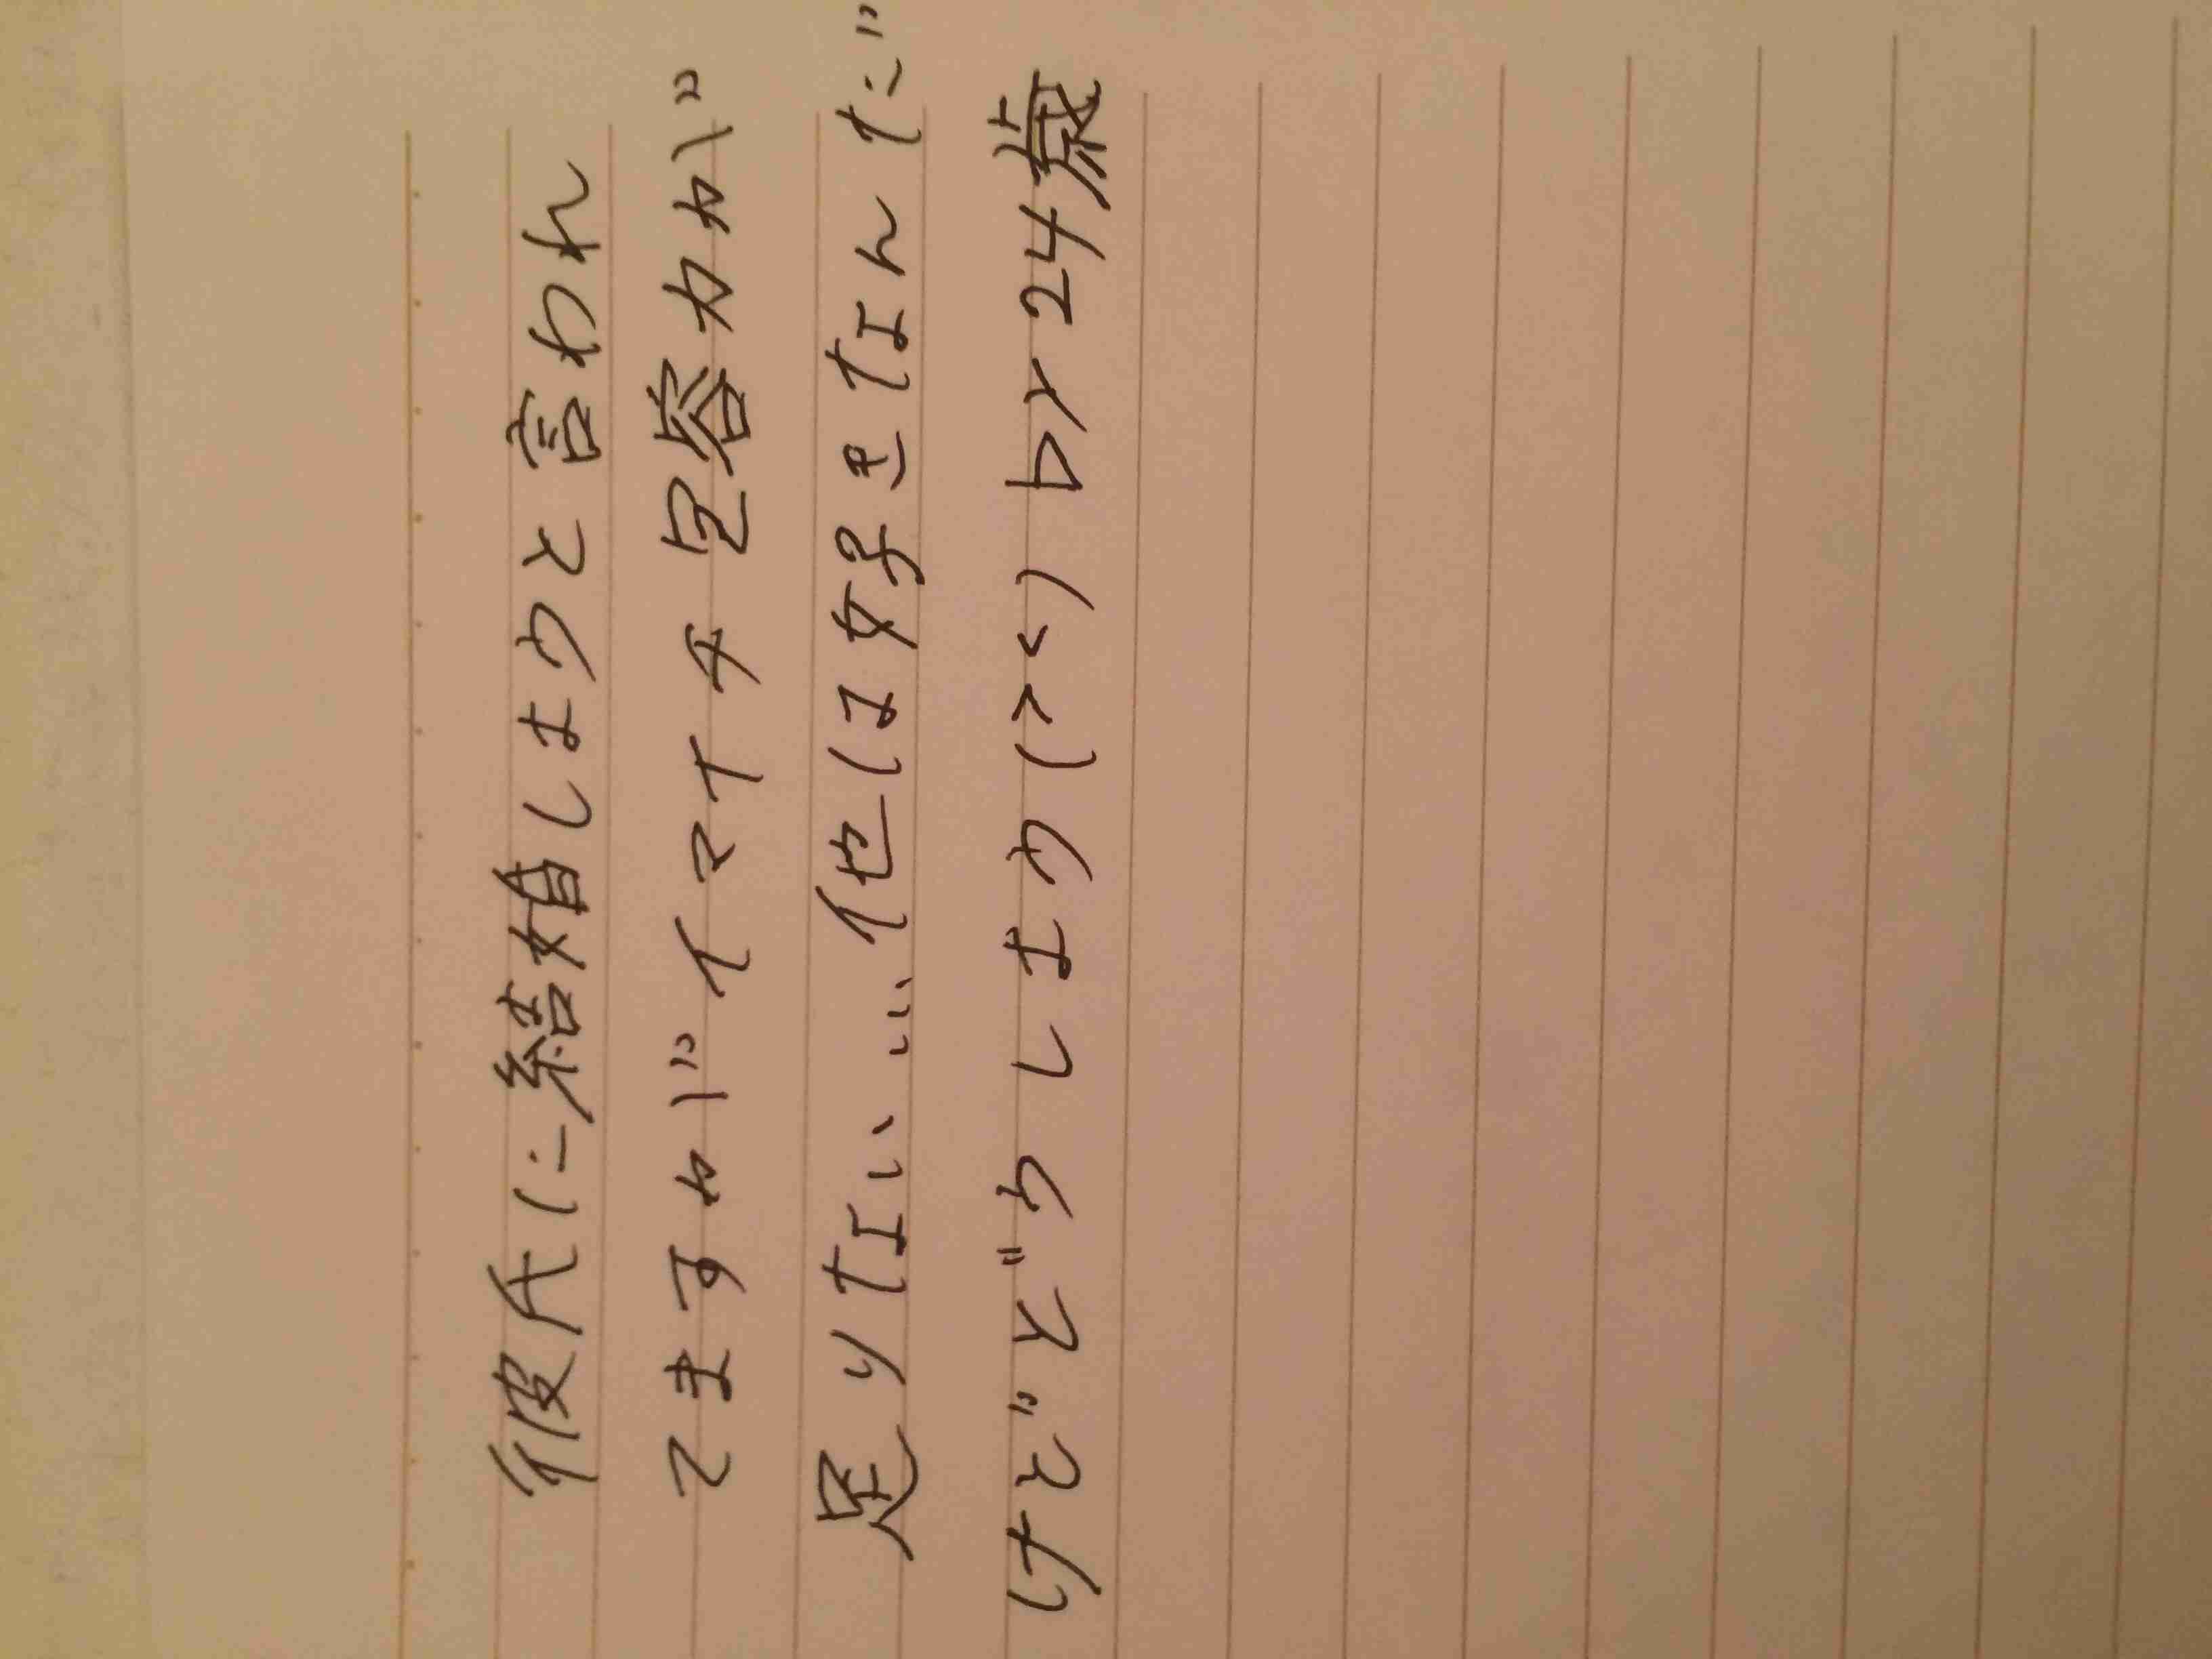 彼氏に結婚しようと言われ
てますが“イマイチ包容力が”
足りない、…他は好きなんだ”
けど“どうしよう(><) by 24歳